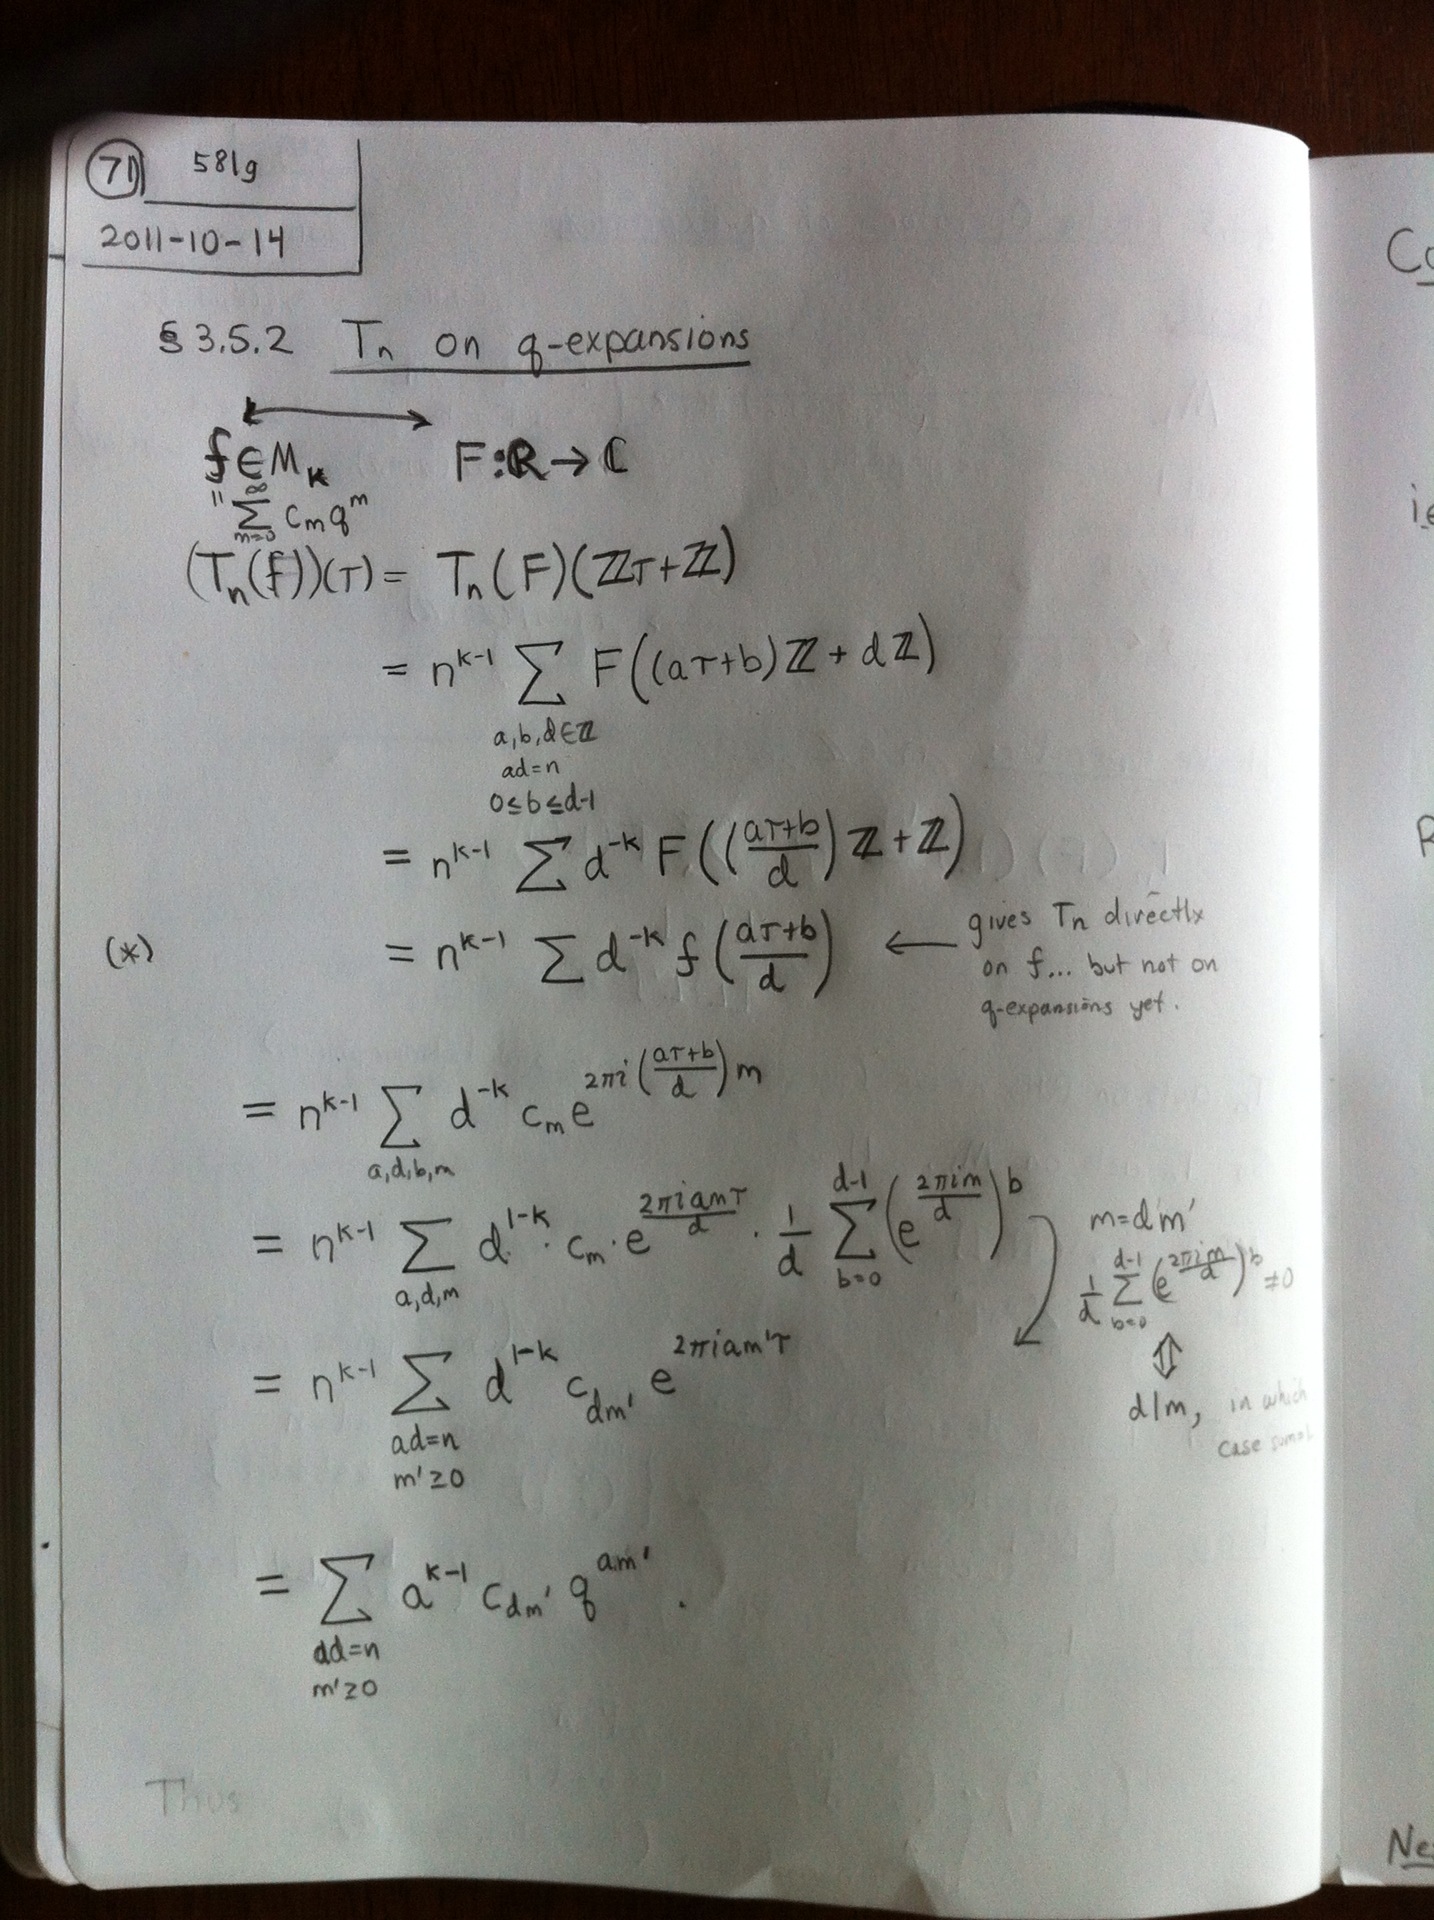 71 581g
2011-10-14
§3.5.2 Tₙ on q-expansions
f ∈ M_k ⟷ F: R → ℂ
" ∑_{m=0}^{∞} c_m q^m
(Tₙ(f))(τ) = Tₙ(F)(ℤτ+ℤ)
= n^{k-1} ∑_{a,b,d∈ℤ, ad=n, 0≤b≤d-1} F((aτ+b)ℤ + dℤ)
= n^{k-1} ∑ d^{-k} F(((aτ+b)/d)ℤ+ℤ)
(*) = n^{k-1} ∑ d^{-k} f((aτ+b)/d) ← gives Tₙ directly
on f... but not on
q-expansions yet.
= n^{k-1} ∑_{a,d,b,m} d^{-k} c_m e^{2πi((aτ+b)/d)m}
= n^{k-1} ∑_{a,d,m} d^{1-k} · c_m · e^{2πiamτ/d} · 1/d ∑_{b=0}^{d-1} (e^{2πim/d})^b
m=dm'
1/d ∑_{b=0}^{d-1} (e^{2πim/d})^b ≠0
⇕
d|m, in which
case sum=1
= n^{k-1} ∑_{ad=n, m'≥0} d^{1-k} c_{dm'} e^{2πiam'τ}
= ∑_{ad=n, m'≥0} a^{k-1} c_{dm'} q^{am'}.
Thus
Ne